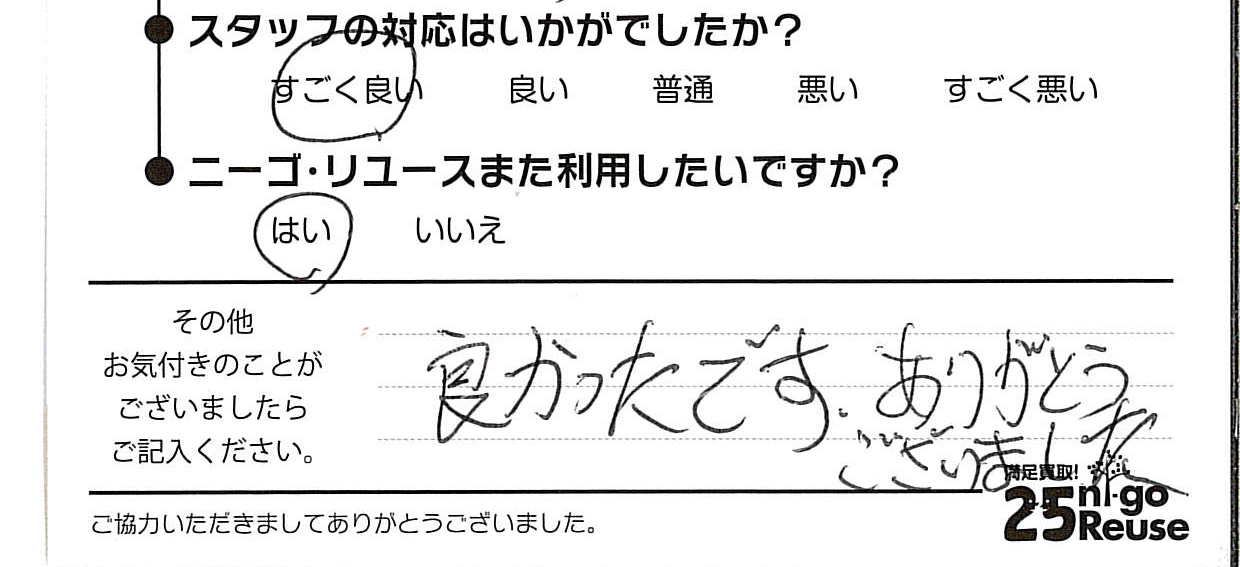 スタッフの対応はいかがでしたか？
すごく良い 良い 普通 悪い すごく悪い
ニーゴ・リユースまた利用したいですか？
はい いいえ
その他
お気付きのことが
ございましたら
ご記入ください。
良かったです.ありがとう
ございました
満足買取!
25 ni-go
Reuse
ご協力いただきましてありがとうございました。